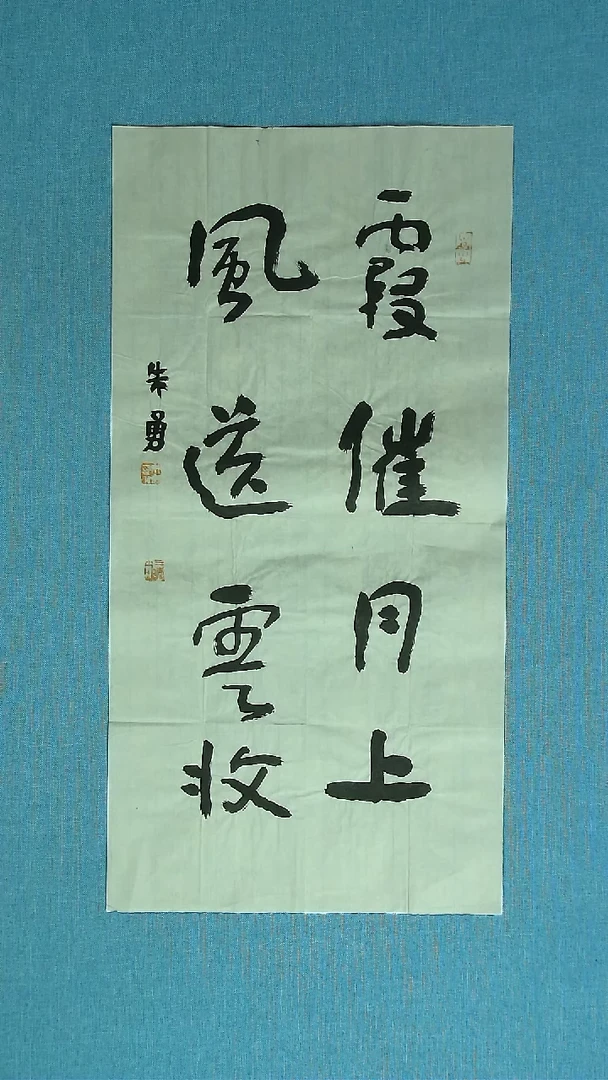 霞催月上
風送雲收
朱勇